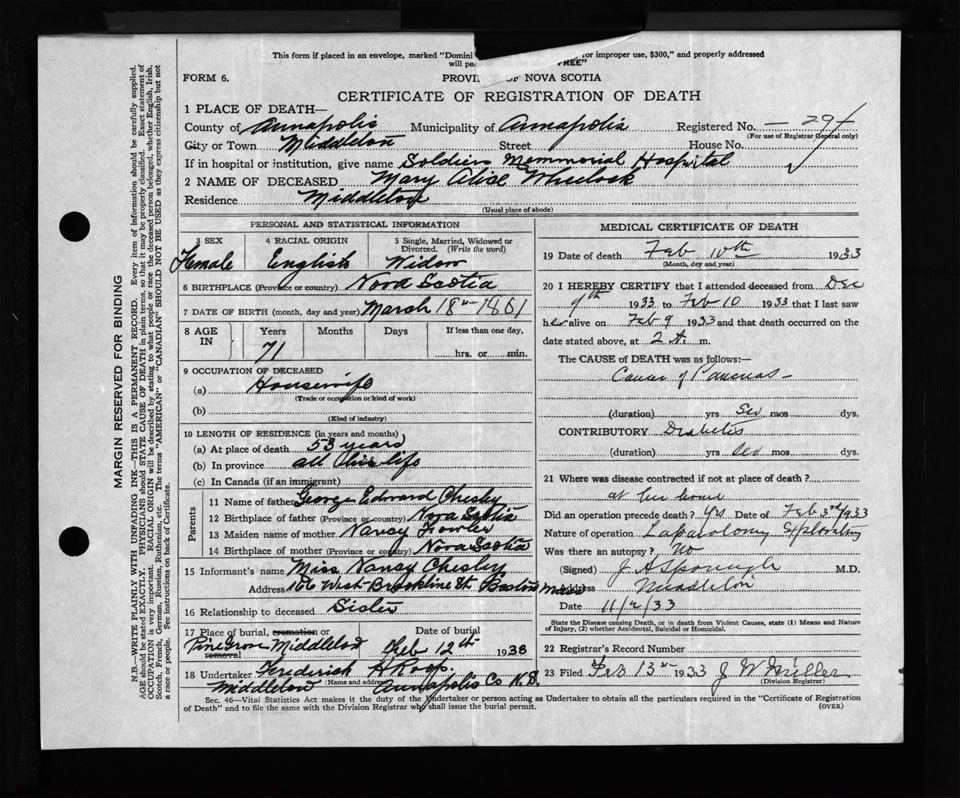 This form if placed in an envelope, marked "Domini for improper use, $300," and properly addressed
will pa FREE"
FORM 6. PROVI OF NOVA SCOTIA
CERTIFICATE OF REGISTRATION OF DEATH
1 PLACE OF DEATH—
County of Annapolis Municipality of Annapolis Registered No. — 29
(For use of Registrar General only)
City or Town Middleton Street House No.
If in hospital or institution, give name Soldiers Memmorial Hospital
2 NAME OF DECEASED Mary Alice Wheelock
Residence Middleton
(Usual place of abode)
PERSONAL AND STATISTICAL INFORMATION
3 SEX 4 RACIAL ORIGIN 5 Single, Married, Widowed or Divorced. (Write the word)
Female English Widow
6 BIRTHPLACE (Province or country) Nova Scotia
7 DATE OF BIRTH (month, day and year) March 18th 1861
8 AGE IN Years Months Days If less than one day,
71 hrs. or min.
9 OCCUPATION OF DECEASED
(a) Housewife
(Trade or occupation or kind of work)
(b)
(Kind of industry)
10 LENGTH OF RESIDENCE (in years and months)
(a) At place of death 53 years
(b) In province all her life
(c) In Canada (if an immigrant)
Parents
11 Name of father George Edward Chesley
12 Birthplace of father (Province or country) Nova Scotia
13 Maiden name of mother Nancy Fowler
14 Birthplace of mother (Province or country) Nova Scotia
15 Informant's name Miss Nancy Chesley
Address 166 West Brookline St Boston Mass
16 Relationship to deceased Sister
17 Place of burial, cremation or removal Date of burial
Pine Grove Middleton Feb 12th 1933
18 Undertaker Frederick A Roop.
Middleton (Name and address) Annapolis Co N.S.
MEDICAL CERTIFICATE OF DEATH
19 Date of death Feb 10th 1933
(Month, day and year)
20 I HEREBY CERTIFY that I attended deceased from Dec
9th 1933 to Feb 10 1933 that I last saw
her alive on Feb 9 1933 and that death occurred on the
date stated above, at 2 A. m.
The CAUSE of DEATH was as follows:—
Cancer of Pancreas —
(duration) yrs Sev mos dys.
CONTRIBUTORY Diabetes
(duration) yrs mos dys.
21 Where was disease contracted if not at place of death?
at her home
Did an operation precede death? yes Date of Feb 3rd 1933
Nature of operation Laparotomy Exploratory
Was there an autopsy? No
(Signed) J A Sponagle M.D.
Address Middleton
Date 11/2/33
State the Disease causing Death, or in death from Violent Causes, state (1) Means and
Nature of Injury, (2) whether Accidental, Suicidal or Homicidal.
22 Registrar's Record Number
23 Filed Feb 13th 1933 J W Miller
(Division Registrar)
Sec. 46—Vital Statistics Act makes it the duty of the Undertaker or person acting as Undertaker to obtain all the particulars required in the "Certificate of Registration
of Death" and to file the same with the Division Registrar who shall issue the burial permit. (OVER)
MARGIN RESERVED FOR BINDING
N.B.—WRITE PLAINLY WITH UNFADING INK—THIS IS A PERMANENT RECORD. Every item of information should be carefully supplied.
AGE should be stated EXACTLY. PHYSICIANS should STATE CAUSE OF DEATH in plain terms, so that it may be properly classified. Exact statement of
OCCUPATION is very important. RACIAL ORIGIN will be described by stating to what people or race the deceased person belonged, whether English, Irish,
Scotch, French, German, Russian, Ruthenian, etc. The terms "AMERICAN" or "CANADIAN" SHOULD NOT BE USED as they express citizenship but not
a race or people. See instructions on back of Certificate.